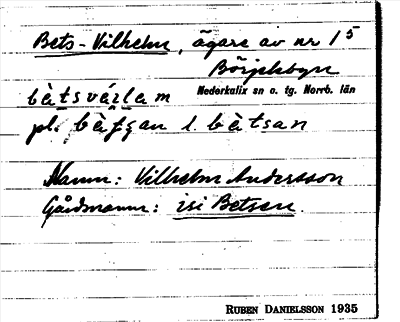 Bets-Vilhelm, ägare av nr 15
Börjelsbyn
Nederkalix sn o. tg. Norrb. län
bètsvılem
pl. bètsan l. bètsan
Namn: Vilhelm Andersson
Gårdnamn: isi Betsen.
RUBEN DANIELSSON 1935